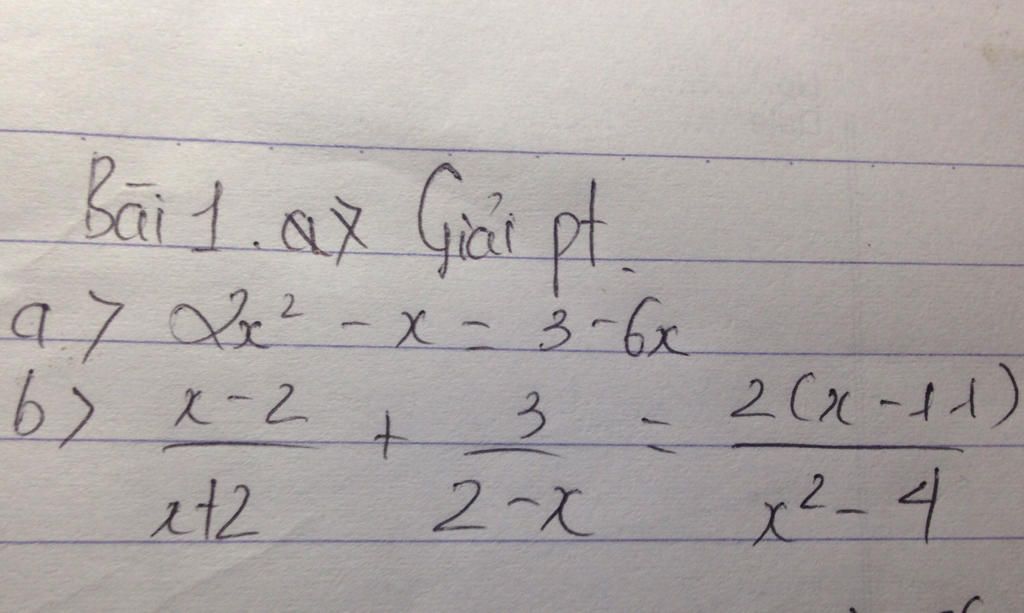 Bài 1. a> Giải pt.
a> 2x² - x = 3 - 6x
b> (x-2)/(x+2) + 3/(2-x) = 2(x-11)/(x²-4)